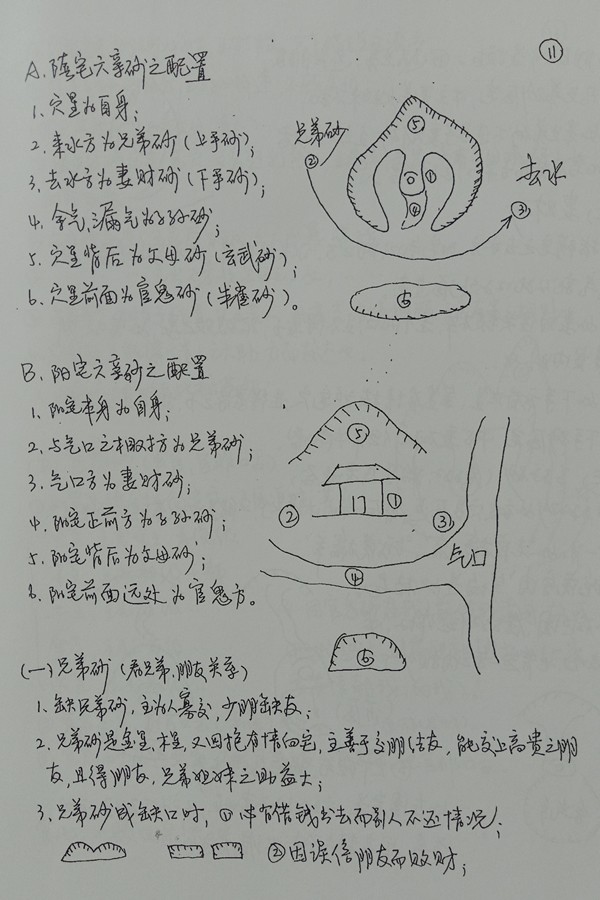 ⑪
A. 荫宅六亲砂之配置
1. 穴星为自身;
2. 来水方为兄弟砂(上手砂);
3. 去水方为妻财砂(下手砂);
4. 余气、漏气为子孙砂;
5. 穴星背后为父母砂(玄武砂);
6. 穴星前面为官鬼砂(朱雀砂)。
兄弟砂
②
⑤
①
④
去水
③
⑥
B. 阳宅六亲砂之配置
1. 阳宅本身为自身;
2. 与气口之相对方为兄弟砂;
3. 气口方为妻财砂;
4. 阳宅正前方为子孙砂;
5. 阳宅背后为父母砂;
6. 阳宅前面远处为官鬼方。
⑤
①
②
③
气口
④
⑥
(一)兄弟砂(看兄弟、朋友关系)
1. 缺兄弟砂,主为人寡交,少朋缺友;
2. 兄弟砂是金星,木星,又回抱有情向宅,主善于交朋结友,能交上高贵之朋
友,且得朋友、兄弟姐妹之助益大;
3. 兄弟砂成缺口时,①常有借钱出去而别人不还情况;
②因误信朋友而败财;